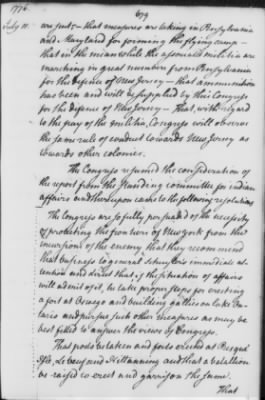 1776.
679
July 11.
are suits — that measures are taking in Pensylvania
and Maryland for forming the flying camp —
that in the mean while the associated militia are
marching in great numbers from Pensylvania
for the defence of New Jersey — that ammunition
has been and will be supplied by this Congress
for the defence of New Jersey — That, with regard
to the pay of the militia, Congress will observe
the same rule of conduct towards New Jersey as
towards other colonies.
The Congress resumed the consideration of
the report from the standing committee for indian
affairs and thereupon came to the following resolutions
The Congress are so fully persuaded of the necessity
of protecting the frontiers of New york from the
incursions of the enemy that they recommend
that business to general Schuyler's immediate at-
tention and direct that if the situation of affairs
will admit of it, he take proper steps for erecting
a fort at Oswego and building gallies on lake On-
tario and pursue such other measures as may be
best fitted to answer the views of Congress.
That posts be taken and forts erected at Presqui
Isle, Le beuf and Kittanning and that a batallion
be raised to erect and garrison the same.
That